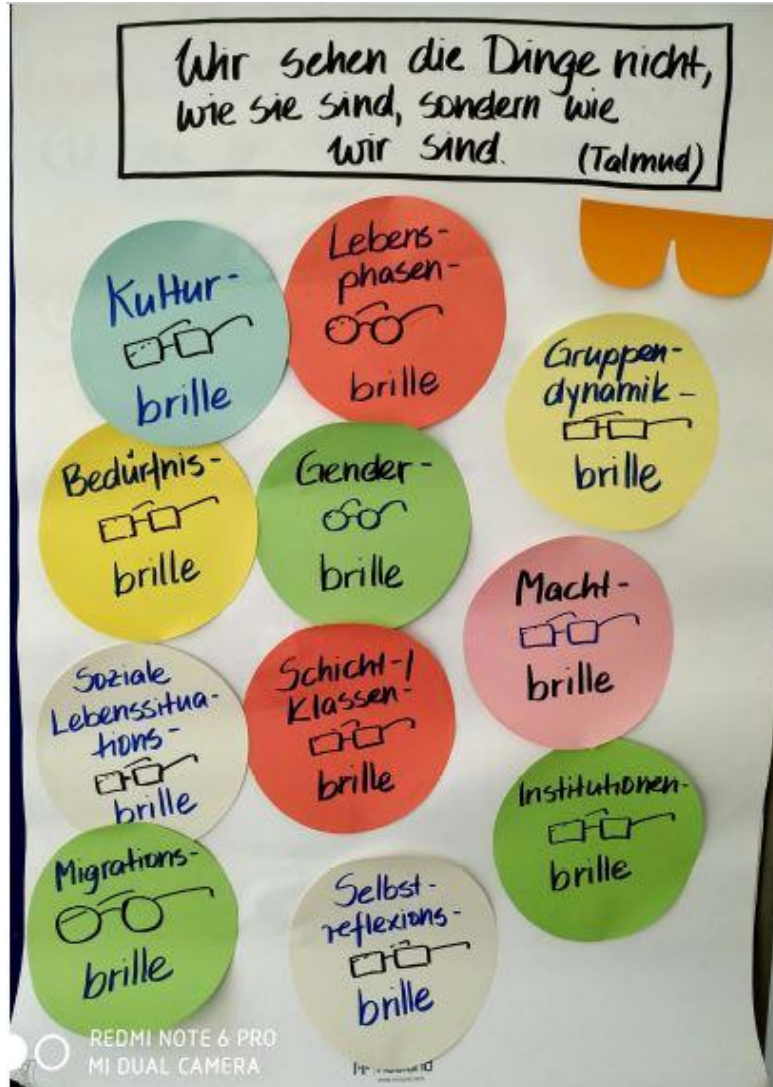 Wir sehen die Dinge nicht,
wie sie sind, sondern wie
wir sind. (Talmud)
Kultur-
brille
Lebens-
phasen-
brille
Gruppen-
dynamik-
brille
Bedürfnis-
brille
Gender-
brille
Macht-
brille
Soziale
Lebenssitua-
tions-
brille
Schicht-/
Klassen-
brille
Institutionen-
brille
Migrations-
brille
Selbst-
reflexions-
brille
REDMI NOTE 6 PRO
MI DUAL CAMERA